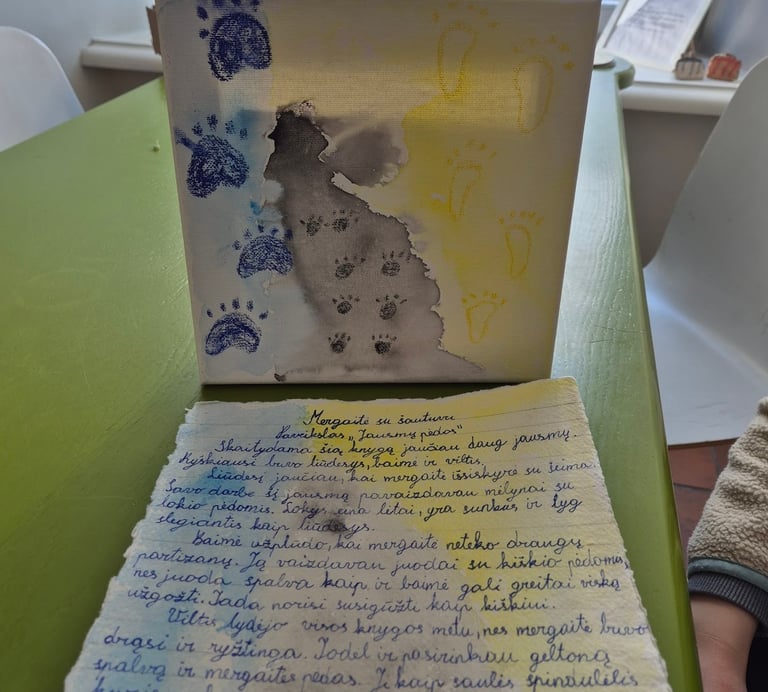 Mergaitė su šautuvu
Paveikslas „Jausmų pėdos"
Skaitydama šią knygą jaučiau daug jausmų.
Ryškiausi buvo liūdesys, baimė ir viltis.
Liūdesį jaučiau, kai mergaitė išsiskyrė su šeima.
Savo darbe šį jausmą pavaizdavau mėlynai su
lokio pėdomis. Lokys eina lėtai, yra sunkus ir lyg
slegiantis kaip liūdesys.
Baimė užplūdo, kai mergaitė neteko draugų
partizanų. Ją vaizdavau juodai su kiškio pėdomis,
nes juoda spalva kaip ir baimė gali greitai viską
užgožti. Tada norisi susigūžti kaip kiškiui.
Viltis lydėjo visos knygos metu, nes mergaitė buvo
drąsi ir ryžtinga. Todėl ir pasirinkau geltoną
spalvą ir mergaitės pėdas. Ji kaip saulės spindulėlis